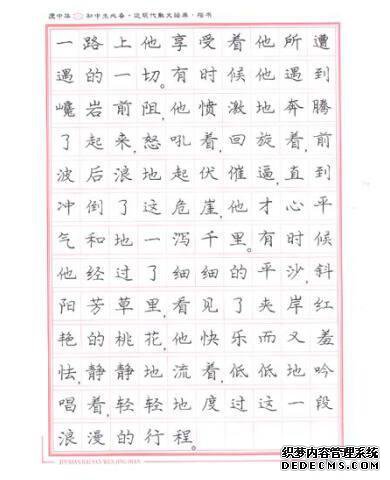 庞中华 初中生必备·近现代散文经典·楷书
一路上他享受着他所遭
遇的一切。有时候他遇到
巉岩前阻,他愤激地奔腾
了起来,怒吼着,回旋着,前
波后浪地起伏催逼,直到
冲倒了这危崖,他才心平
气和地一泻千里。有时候
他经过了细细的平沙,斜
阳芳草里,看见了夹岸红
艳的桃花,他快乐而又羞
怯,静静地流着,低低地吟
唱着,轻轻地度过这一段
浪漫的行程。
JINXIANDAI SANWEN JINGDIAN
织梦内容管理系统
DEDECMS.COM